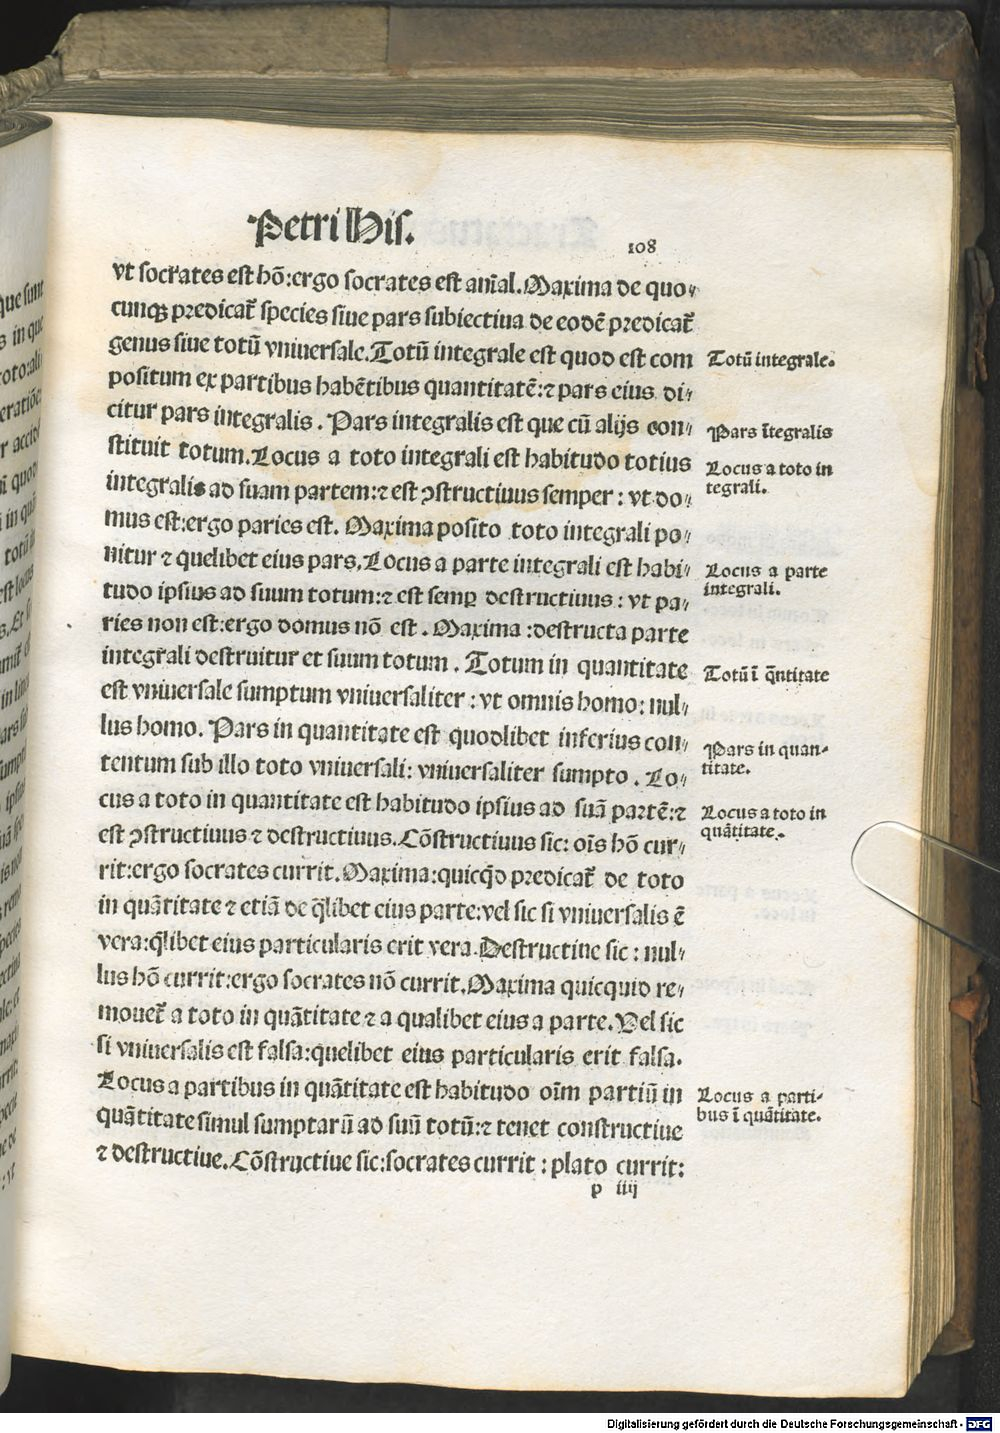 Petri His.
108
vt socrates est hõ:ergo socrates est aĩal.Maxima de quo⸗
cunqꝫ predicat̃ species siue pars subiectiua de eodẽ predicat̃
genus siue totũ vniuersale.Totũ integrale est quod est com
positum ex partibus habẽtibus quantitatẽ:⁊ pars eius di⸗
citur pars integralis . Pars integralis est que cũ alijs con⸗
stituit totum.Locus a toto integrali est habitudo totius
integralis ad suam partem:⁊ est ꝯstructiuus semper : vt do⸗
mus est:ergo paries est. Maxima posito toto integrali po⸗
nitur ⁊ quelibet eius pars.Locus a parte integrali est habi⸗
tudo ipsius ad suum totum:⁊ est semꝑ destructiuus : vt pa⸗
ries non est:ergo domus nõ est . Maxima :destructa parte
integrali destruitur et suum totum . Totum in quantitate
est vniuersale sumptum vniuersaliter : vt omnis homo: nul⸗
lus homo. Pars in quantitate est quodlibet inferius con⸗
tentum sub illo toto vniuersali: vniuersaliter sumpto . Lo⸗
cus a toto in quantitate est habitudo ipsius ad suã partẽ:⁊
est ꝯstructiuus ⁊ destructiuus.Cõstructiuus sic: oĩs hõ cur⸗
rit:ergo socrates currit.Maxima:quicq̃d predicat̃ de toto
in quãtitate ⁊ etiã de q̃libet eius parte:vel sic si vniuersalis ẽ
vera:q̃libet eius particularis erit vera.Destructiue sic : nul⸗
lus hõ currit:ergo socrates nõ currit.Maxima quicquid re⸗
mouet̃ a toto in quãtitate ⁊ a qualibet eius a parte.Vel sic
si vniuersalis est falsa:quelibet eius particularis erit falsa.
Locus a partibus in quãtitate est habitudo oĩm partiũ in
quãtitate simul sumptarũ ad suũ totũ:⁊ tenet constructiue
⁊ destructiue.Cõstructiue sic:socrates currit : plato currit:
p iiij
Totũ integrale.
Pars ĩtegralis
Locus a toto in
tegrali.
Locus a parte
integrali.
Totũ ĩ q̃ntitate
Pars in quan-
titate.
Locus a toto in
quãtitate.
Locus a parti-
bus ĩ quãtitate.
Digitalisierung gefördert durch die Deutsche Forschungsgemeinschaft - DFG